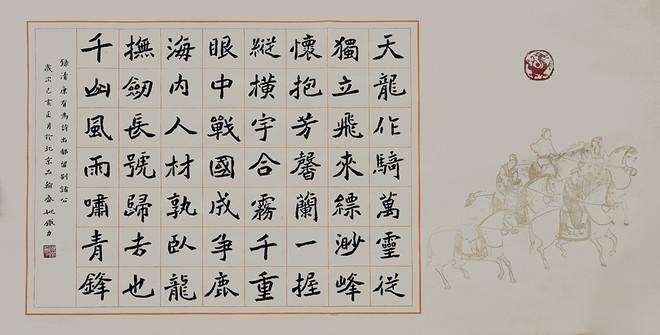 天龍作騎萬靈從
獨立飛來縹渺峰
懷抱芳馨蘭一握
縱橫宇合霧千重
眼中戰國成爭鹿
海内人材孰臥龍
撫劍長號歸去也
千山風雨嘯青鋒
錄清康有為詩出都留別諸公
歲次己亥正月於北京品翰齋